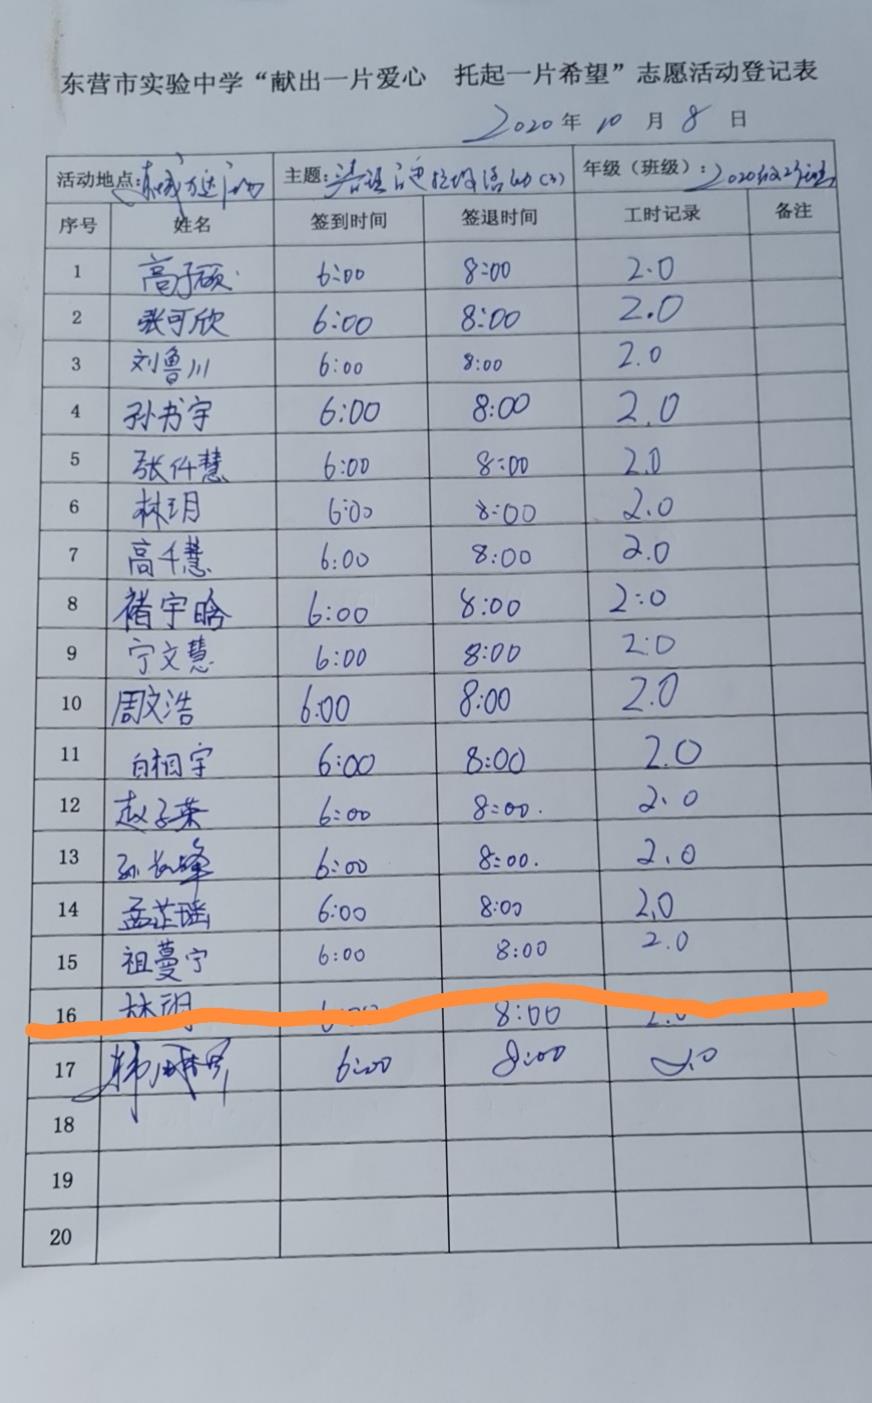 东营市实验中学“献出一片爱心 托起一片希望”志愿活动登记表
2020年10月8日
活动地点:东城万达广场 主题: 活动(3) 年级（班级）: 2020级22班
序号 姓名 签到时间 签退时间 工时记录 备注
1 高子硕 6:00 8:00 2.0
2 张可欣 6:00 8:00 2.0
3 刘鲁川 6:00 8:00 2.0
4 孙书宇 6:00 8:00 2.0
5 张仟慧 6:00 8:00 2.0
6 林玥 6:00 8:00 2.0
7 高千慧 6:00 8:00 2.0
8 褚宇晗 6:00 8:00 2:0
9 宁文慧 6:00 8:00 2:0
10 周文浩 6:00 8:00 2.0
11 白相宇 6:00 8:00 2.0
12 赵子荣 6:00 8:00. 2.0
13 孙 峰 6:00 8:00. 2.0
14 孟芷瑶 6:00 8:00 2.0
15 祖蔓宁 6:00 8:00 2.0
16 林玥 6:00 8:00 2.0
17 6:00 8:00 2.0
18
19
20